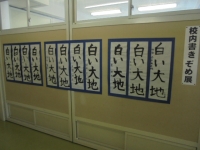 校内書きぞめ展
白い大地
白い大地
白い大地
白い大地
白い大地
白い大地
白い大地
白い大地
白い大地
白い大地